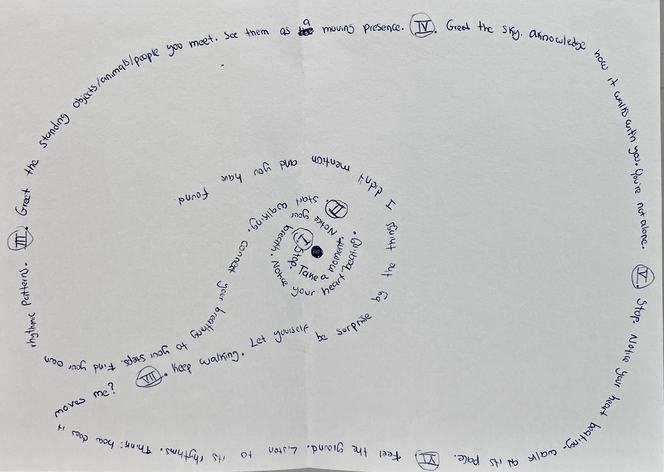 I. Stop. Take a moment. Notice your heart beating. Notice your breath.
II. Start walking. Connect your breathing to your steps. Find your own rhythmic patterns.
III. Greet the standing objects/animals/people you meet. See them as a moving presence.
IV. Greet the sky. aknowledge how it walks with you. You're not alone.
V. Stop. Notice your heart beating - walk at its pace.
VI. Feel the ground. Liston to its rhythms. Think: how does it moves me?
VII. Keep walking. Let yourself be surprise by the things I didn't mention and you have found